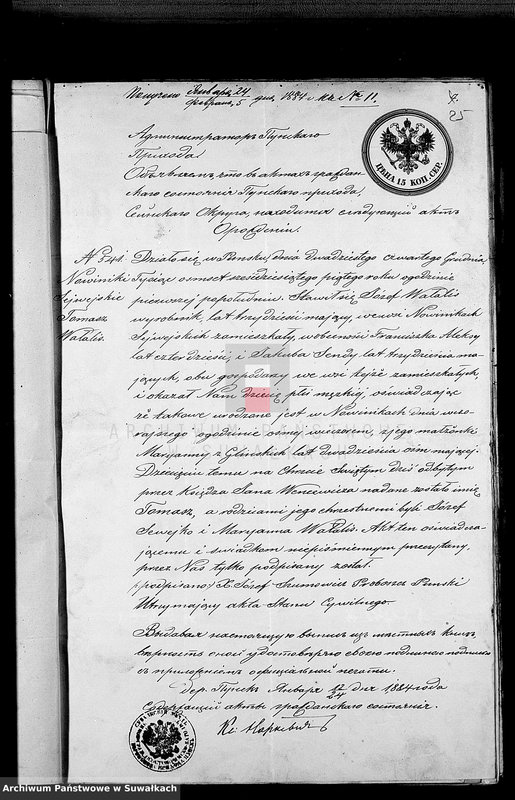 Получено Января 24
Февраля 5 дня, 1884 г. № 11.
25
ЦѢНА 15 КОП. СЕР.
Администраторъ Пунскаго
Прихода
Объявляетъ, что въ актахъ граждан-
скаго состоянія Пунскаго прихода,
Сейнскаго Округа, находится слѣдующій актъ
О рожденіи.
Nowiniki
Sejwejskie
Tomasz
Watalis.
Działo się w Ponsku, dnia dwudziestego czwartego Grudnia
Tysiąc osmset sześdziesiątego piątego roku o godzinie
pierwszej popołudniu. Stawił się Józef Watalis
wyrobnik, lat trzydzieści mający, we wsi Nowinikach
Sejwejskich zamieszkały, w obecności Franciszka Aleksy
lat czterdzieści, i Jakuba Sendy lat trzydzieści ma-
jących, obu gospodarzy we wsi tejże zamieszkałych,
i okazał Nam dziecię płci męzkiej, oświadczając
że takowe urodzone jest w Nowinikach dnia wczo-
rajszego o godzinie ósmej wieczorem, z jego małżonki
Maryanny z lat dwadzieścia ośm mającej.
Dziecięciu temu na Chrzcie Świętym dziś odbytym
przez Księdza Jana Wencewicza nadane zostało imię
Tomasz, a rodzicami jego chrzestnemi byli Józef
Sewejko i Maryanna Watalis. Akt ten oświadcza-
jącemu i świadkom niepiśmiennym przeczytany,
przez Nas tylko podpisany został.
(podpisano) X. Józef Szumowicz Proboszcz Punski
Utrzymujący akta Stanu Cywilnego.
Выдавая настоящую выпись изъ книгъ,
вѣрность оной удостовѣряю своею подписью
съ приложеніемъ оффиціальной печати.
дер. Пунскъ Января 12/24 дня 1884 года
Содержащій акты гражданскаго состоянія.
Кс. Наркевичъ
Archiwum Państwowe w Suwałkach